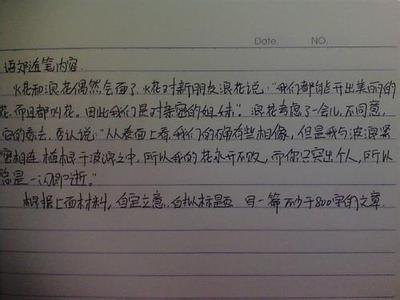 Date. NO.
语郊近笔内容.
火花和浪花偶然会面了,火花对新朋友浪花说:"我们都能开出美丽的
花.而且都叫花.因此我们是对亲密的姐妹".浪花考虑了一会儿,不同意
的看法,它认说:"从表面上看,我们的确有些相像,但是我与波浪紧
密相连.植根于波浪之中,所以我的花永开不败,而你只突出个人,所以
总是一闪即逝."
根据上面材料,自定立意.自拟标题 写一篇不少于800字的文章.